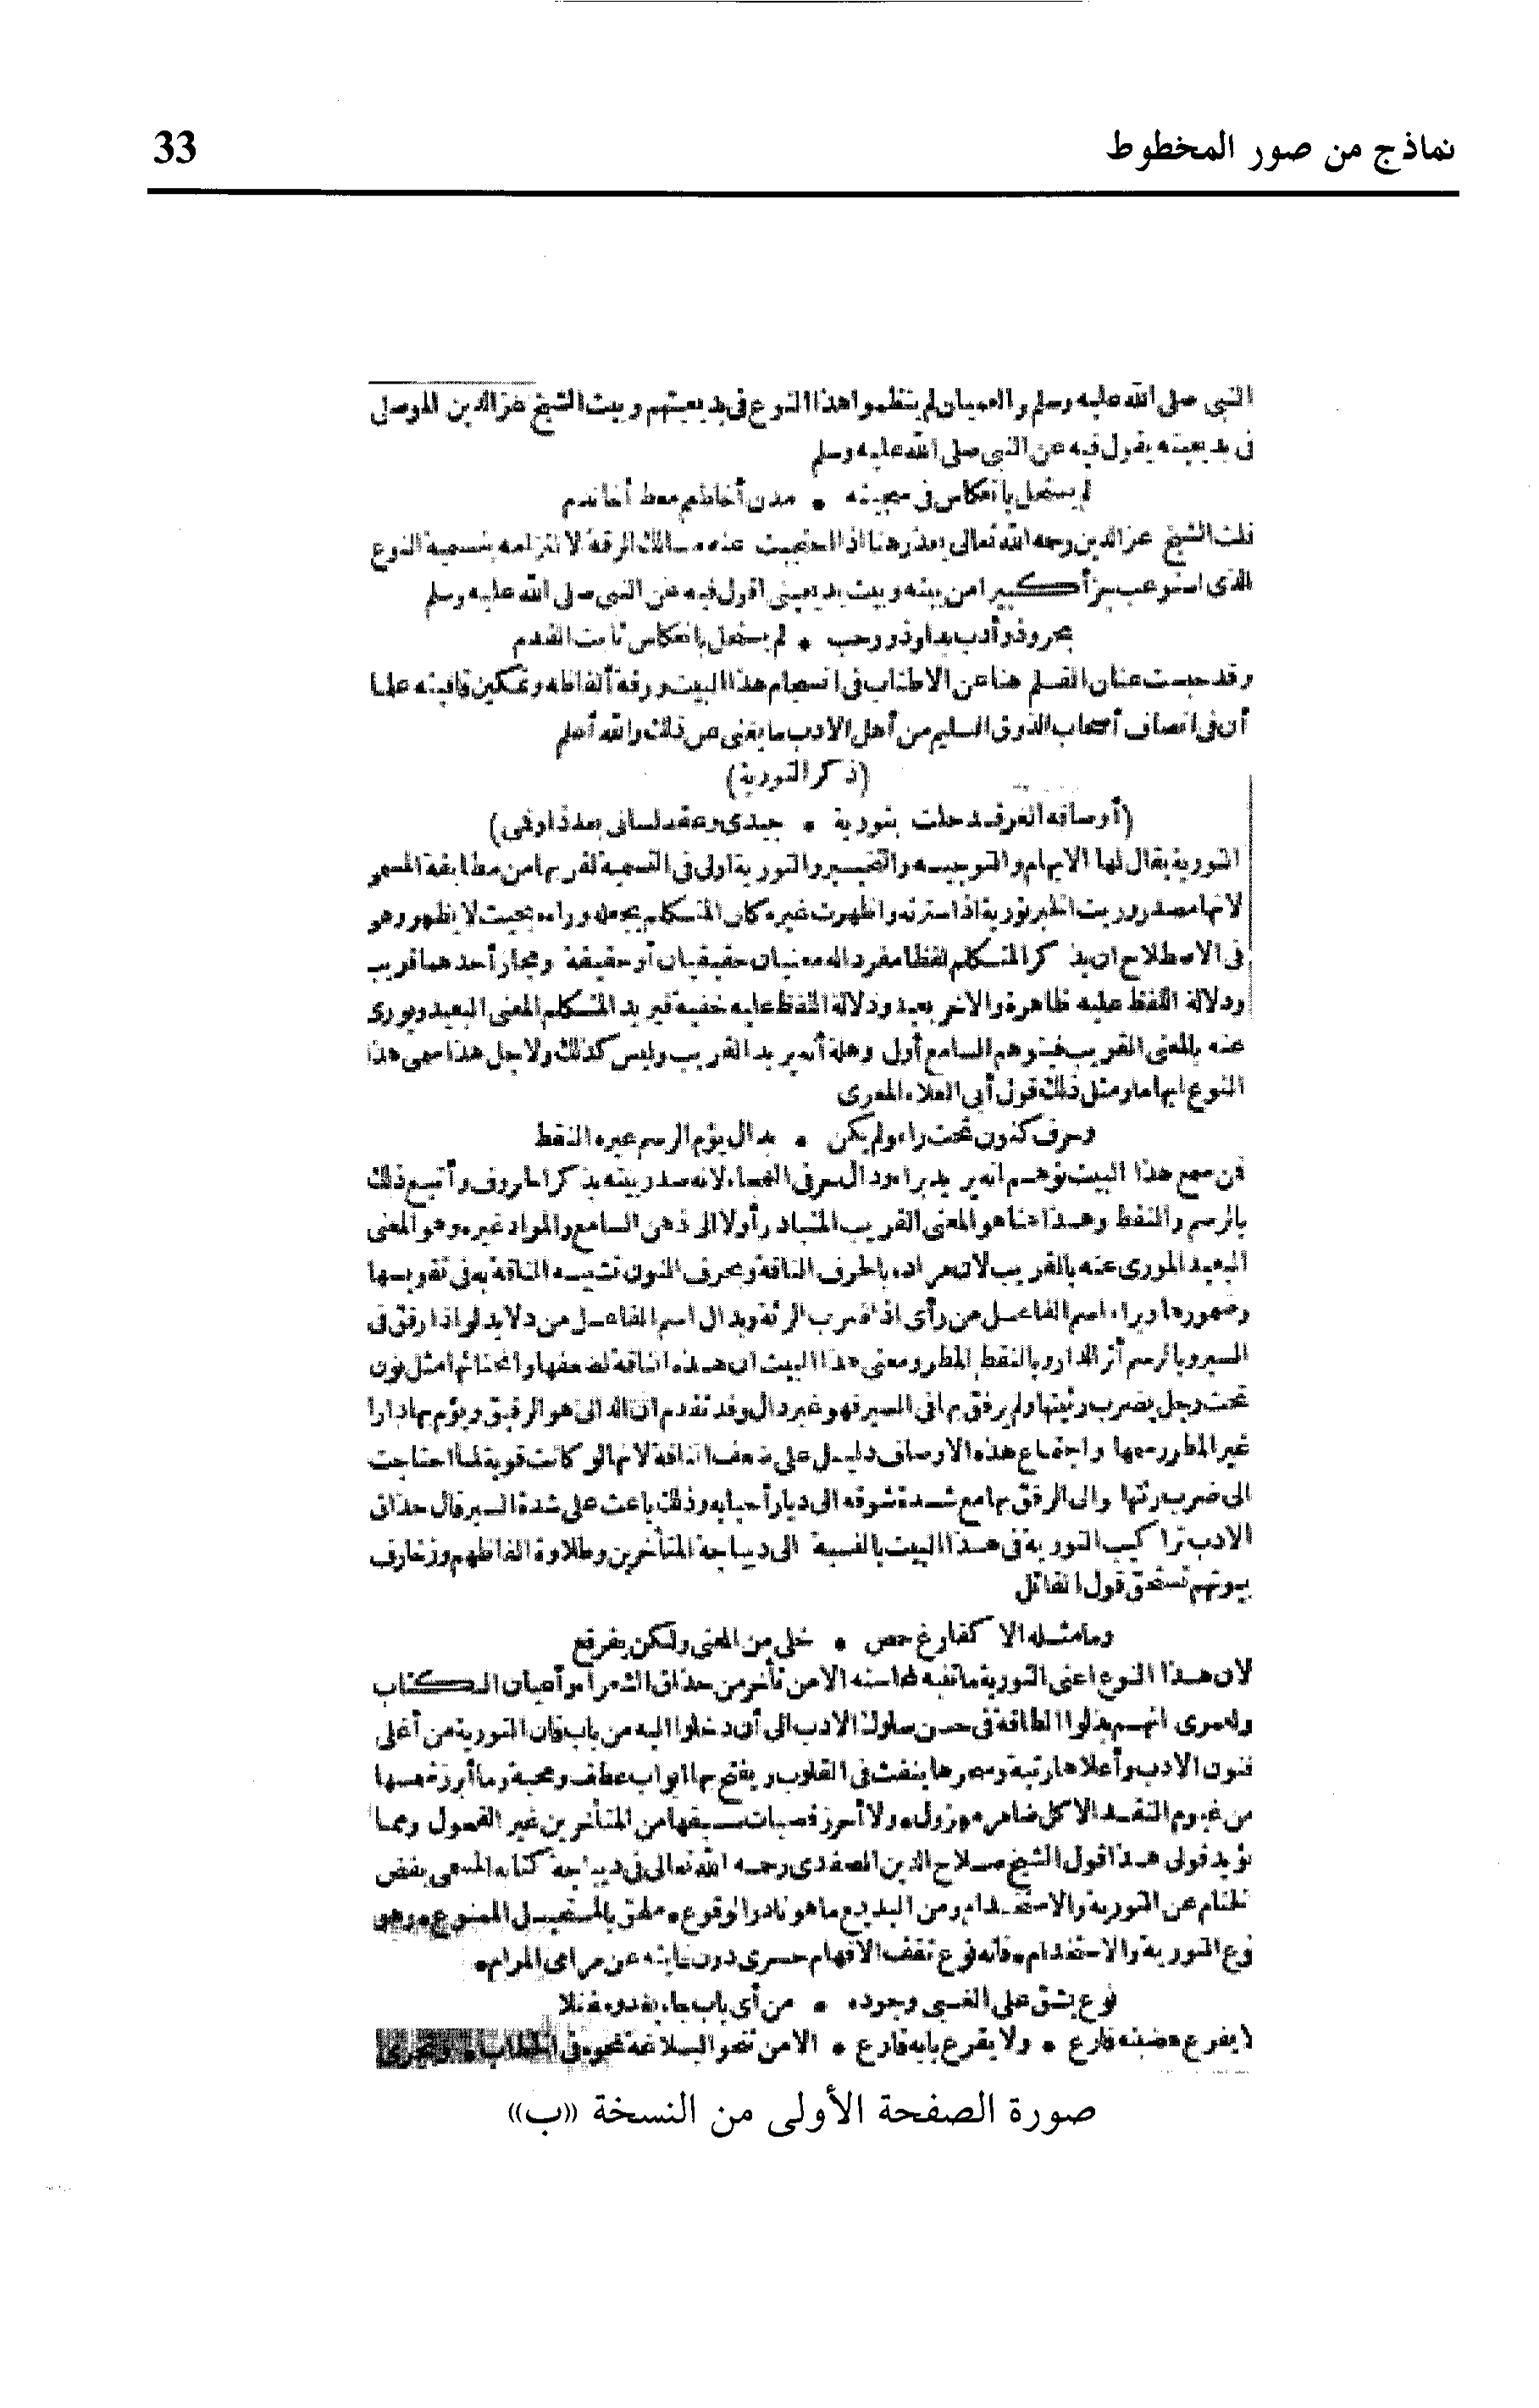 نماذج من صور المخطوط
33
النبي صلى الله عليه وسلم والعميان لم ينظموا هذا النوع في بديعيتهم وبيت الشيخ عز الدين الموصلي
في بديعيته يقول فيه عن النبي صلى الله عليه وسلم
لم يستحل بانعكاس في سجيته • مدن أخاطم معط أخا ندم
قلت الشيخ عز الدين رحمه الله تعالى يعذر هنا اذا احتجبت عنه مسالك الرقة لالتزامه بتسمية النوع
الذى استوعب جزأ كبيرا من بيته وبيت بديعيتى اقول فيه عن النبى صلى الله عليه وسلم
بحر وذو أدب بدا وذو رحب • لم يستحل بانعكاس ثابت القدم
وقد حبست عنان القلم هنا عن الاطناب فى انسجام هذا البيت ورقة ألفاظه وتمكين قافيته علما
أن فى انصاف أصحاب الذوق السليم من أهل الادب ما يغنى عن ذلك والله أعلم
(ذكر التورية)
(أوصافه الغر قد حلت بتورية • جيدى وعقد لسانى بعد ذا وفمى)
التورية يقال لها الايهام والتوجيه والتخيير والتورية اولى فى التسمية لقربها من مطابقة المسمى
لانها مصدر وريت الخبر تورية اذا سترته وأظهرت غيره كان المتكلم يجعله وراءه بحيث لا يظهر وهو
فى الاصطلاح ان يذكر المتكلم لفظا مفردا له معنيان حقيقيان أو حقيقة ومجاز أحدهما قريب
ودلالة اللفظ عليه ظاهرة والاخر بعيد ودلالة اللفظ عليه خفية فيريد المتكلم المعنى البعيد ويورى
عنه بالمعنى القريب فيتوهم السامع أول وهلة أنه يريد القريب وليس كذلك ولاجل هذا سمى هذا
النوع ايهاما ومثل ذلك قول أبى العلاء المعرى
وحرف كنون تحت راء ولم يكن • بدال يؤم الرسم غيره النقط
فمن سمع هذا البيت توهم انه يريد براء ودال حرفى الهجاء لانه صدر بيته بذكر الحروف وأتبع ذلك
بالرسم والنقط وهذا هنا هو المعنى القريب المتبادر أولا الى ذهن السامع والمراد غيره وهو المعنى
البعيد المورى عنه بالقريب لان مراده بالحرف الناقة وبحرف النون تشبيه الناقة به فى تقويسها
وضمورها وبراء اسم الفاعل من رأى اذا ضرب الرئة وبدال اسم الفاعل من دلا يدلو اذا رفق فى
السير وبالرسم أثر الدار وبالنقط المطر ومعنى هذا البيت ان هذه الناقة لضعفها وانحنائها مثل نون
تحت رجل يضرب رئتها ولم يرفق بها فى السير فهو غير دال وقد تقدم ان الدالى هو الرفيق ويؤم بها دارا
غير المطر رسمها واجتماع هذه الاوصاف دليل على ضعف الناقة لانها لو كانت قوية لما احتاجت
الى ضرب رئتها والى الرفق بها مع شدة شوقه الى ديار أحبابه وذلك باعث على شدة السير قال حذاق
الادب تراكيب التورية فى هذا البيت بالنسبة الى ديباجة المتأخرين وطلاوة الفاظهم وزخارف
بيوتهم تستحق قول القائل
وما مثله الا كفارغ حمص • خلى من المعنى ولكن يفرقع
لان هذا النوع اعنى التورية ما تنبه لمحاسنه الا من تأخر من حذاق الشعراء وأعيان الكتاب
ولعمرى انهم بذلوا الطاقة فى حسن سلوك الادب الى أن دخلوا اليه من باب فان التورية من أغلى
فنون الادب وأعلاها رتبة وسحرها ينفث فى القلوب ويفتح بها ابواب عطف ومحبة وما أبرز شمسها
من غيوم النقد الا كل ضامر مهزول ولا أحرز قصبات سبقها من المتأخرين غير الفحول ومما
يؤيد قولى هذا قول الشيخ صلاح الدين الصفدى رحمه الله تعالى فى ديباجة كتابه المسمى بفض
الختام عن التورية والاستخدام ومن البديع ما هو نادر الوقوع • ملحق بالمستحيل الممنوع • وهو
نوع التورية والاستخدام • فانه نوع تقف الافهام حسرى دون غايته عن مرامى المرام •
نوع يشق على الغبى وجوده • من أى باب جاء يغدو مقفلا
لا يفرع هضبته فارع • ولا يقرع بابه قارع • الا من تنحو البلاغة نحوه فى الخطاب • وتجرى
صورة الصفحة الأولى من النسخة «ب»